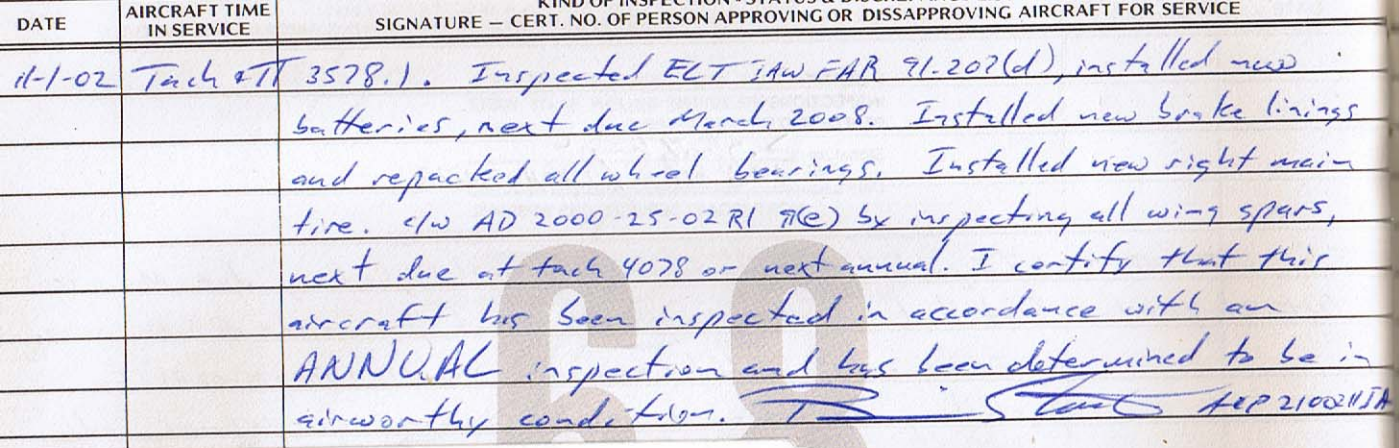 DATE
AIRCRAFT TIME
IN SERVICE
SIGNATURE — CERT. NO. OF PERSON APPROVING OR DISSAPPROVING AIRCRAFT FOR SERVICE
11-1-02 Tach & TT 3578.1. Inspected ELT IAW FAR 91-207(d), installed new
batteries, next due March 2008. Installed new brake linings
and repacked all wheel bearings. Installed new right main
tire. c/w AD 2000-25-02 R1 ¶(e) by inspecting all wing spars,
next due at tach 4078 or next annual. I certify that this
aircraft has been inspected in accordance with an
ANNUAL inspection and has been determined to be in
airworthy condition. A&P
68